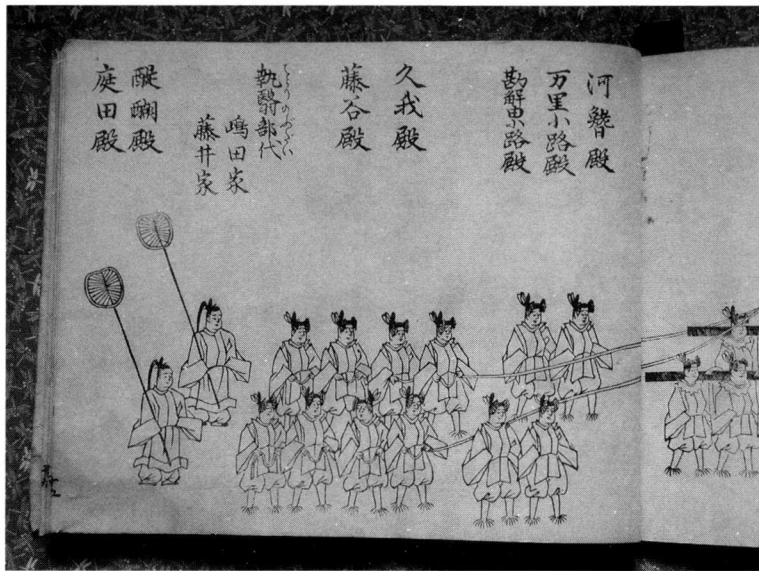 河鬐殿
万里小路殿
勘解由小路殿
久我殿
藤谷殿
執翳部代
嶋田家
藤井家
醍醐殿
庭田殿